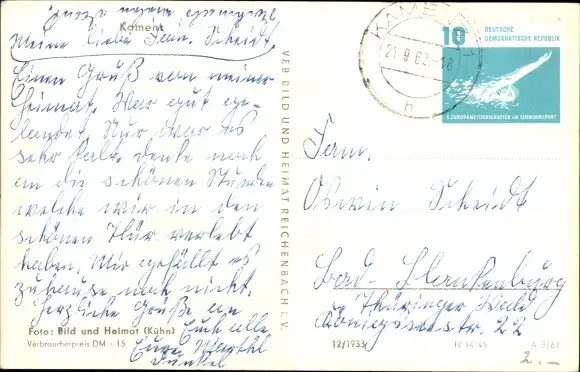 Kamenz
Meine liebe Fam. Scheidt,
Einen Gruß von meiner
Heimat. War gut ge-
landet. Nur war es
sehr kalt. Denke noch
an die schönen Stunden
welche wir in den
schönen Thür verlebt
haben. Mir gefällt es
zuhause noch nicht.
Herzliche Grüße an
Euch alle
Eure
Foto: Bild und Heimat (Kühn)
Verbraucherpreis DM -.15
VEB BILD UND HEIMAT REICHENBACH i. V.
KAMENZ
21.9.62.-18
h
10
DEUTSCHE
DEMOKRATISCHE REPUBLIK
X. EUROPAMEISTERSCHAFTEN IM SCHWIMMSPORT
Fam.
Oswin Scheidt
Bad-Blankenburg
Thüringer Wald
Königseestr. 22
12/1933
IV-14-45
A 3/62
2.-